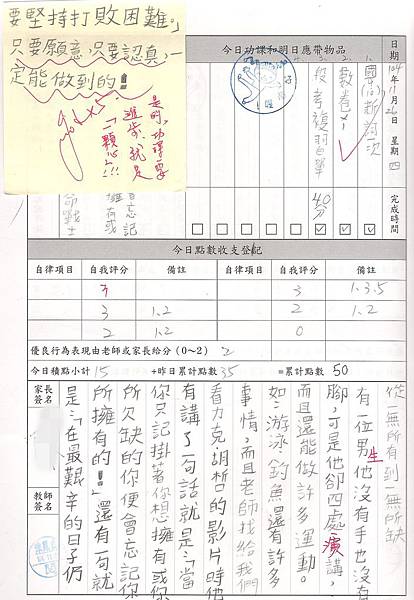 要堅持打敗困難。」
只要願意,只要認真,一
定能做到的!!
是的,功課要
進步,就是
「一顆心」!!!
今日功課和明日應帶物品
日期
104
11
26
星期 四
完成時間
數卷×1
段考複習單
40分
今日點數收支登記
自律項目 自我評分 備註 自律項目 自我評分 備註
3 3 1.3.5
3 1.2 2 1.2
2 1.2 0
優良行為表現由老師或家長給分(0~2) 2
今日積點小計 15 +昨日累計點數 35 =累計點數 50
家長簽名
教師簽名
從一無所有到一無所缺
有一位男生他沒有手也沒有
腳,可是他卻四處演講,
而且還能做許多運動。
如:游泳、釣魚還有許多
事情,而且老師找給我們
看力克胡哲的影片時他
有講了一句話就是:「當
你只記掛著你想擁有或你
所欠缺的你便會忘記你
所擁有的!」還有一句就
是:「在最艱辛的日子仍